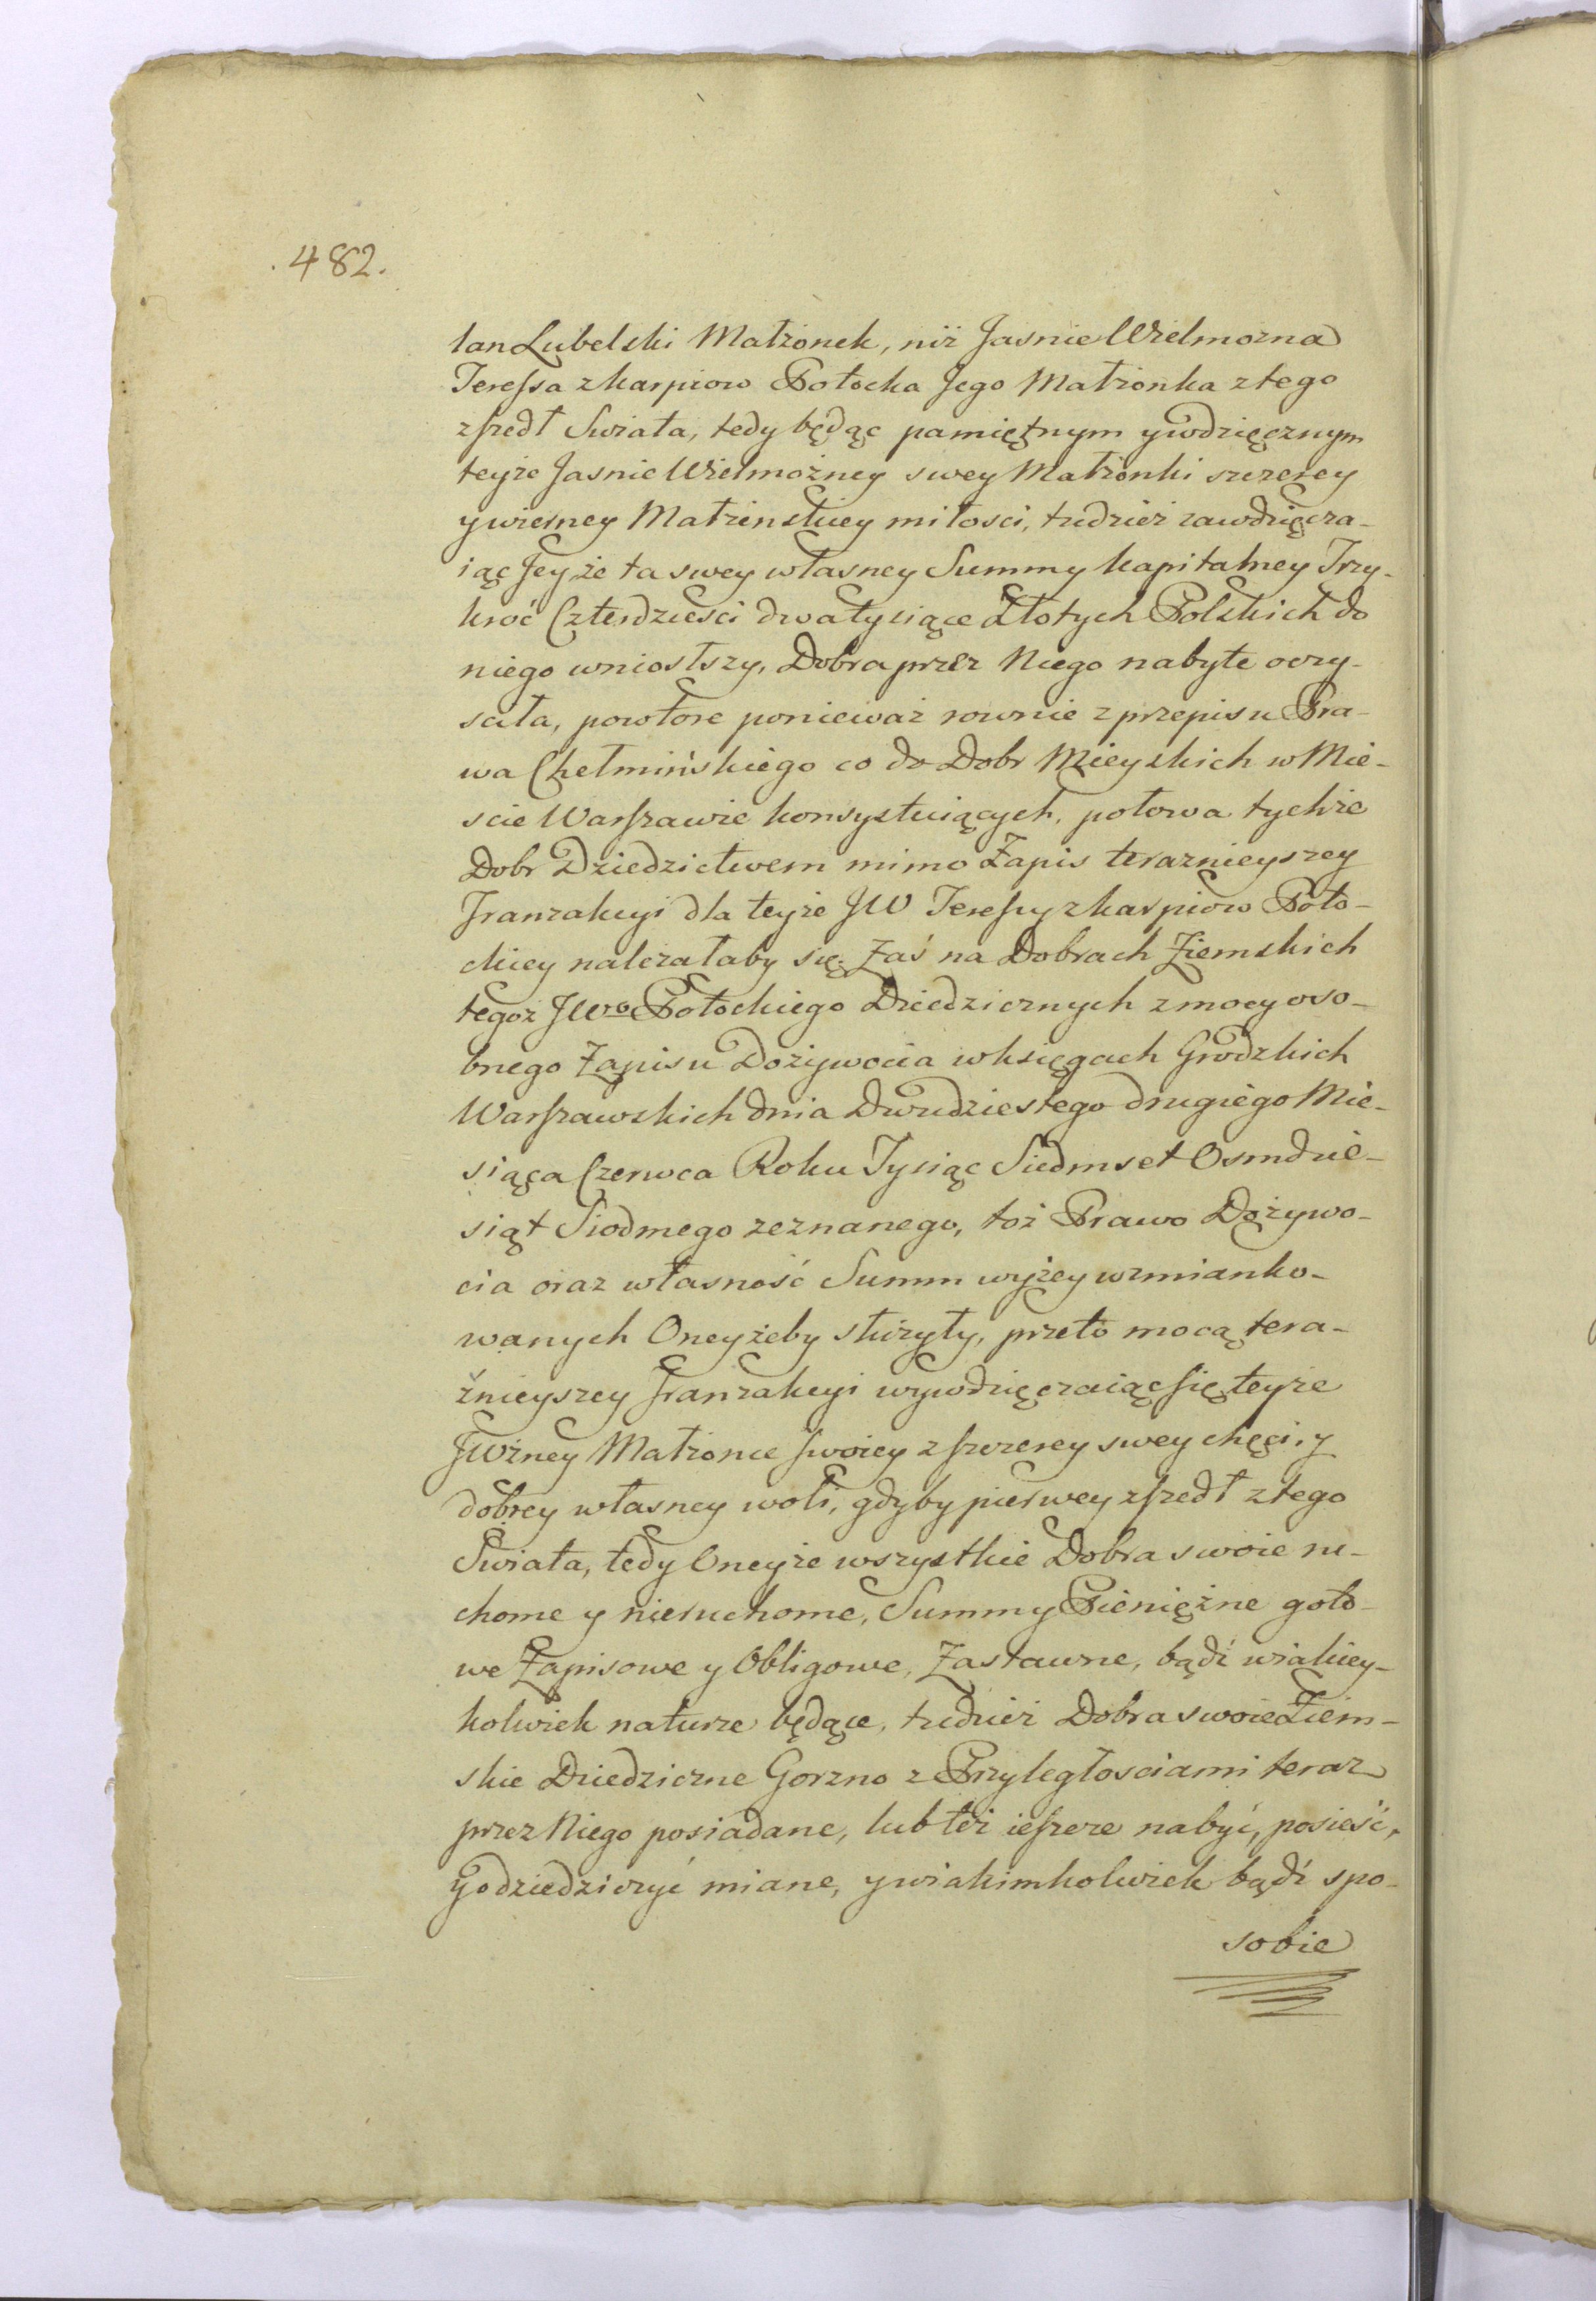 .482.
lan Lubelski Małżonek, niż Jasnie Wielmożna
Teressa z Karpiow Potocka Jego Małżonka z tego
zszedł Swiata, tedy będąc pamiętnym y wdzięcznym
teyże Jasnie Wielmożney swey Małżonki szczerey
y wierney Małżenskiey miłosci, tudzież zawdzięcza-
iąc Jey, że ta swey własney Summy kapitalney Trzy-
kroć Czterdziesci dwa tysiące Złotych Polskich do
niego wniosłszy, Dobra przez Niego nabyte oczy-
sciła, powtore ponieważ rownie z przepisu Pra-
wa Chełmińskiego co do Dobr Mieyskich w Mie-
scie Warszawie konsystuiących, połowa tychże
Dobr Dziedzictwem mimo Zapis teraznieyszey
Tranzakcyi dla teyże JW Teressy z Karpiow Poto-
ckiey należałaby się. Zaś na Dobrach Ziemskich
tegoż JWo Potockiego Dziedzicznych z mocy oso-
bnego Zapisu Dożywocia w księgach Grodzkich
Warszawskich dnia Dwudziestego drugiego Mie-
siąca Czerwca Roku Tysiąc Siedmset Osmdzie-
siąt Siodmego zeznanego, toż Prawo Dożywo-
cia oraz własność Summ wyżey wzmianko-
wanych Oney żeby służyły, przeto mocą tera-
źnieyszey Tranzakcyi wywdzięczaiąc się teyże
JWżney Małżonce swoiey z szczerey swey chęci, y
dobrey własney woli, gdyby pierwey zszedł z tego
Swiata, tedy Oneyże wszystkie Dobra swoie ru-
chome y nieruchome, Summy Pieniężne goto-
we Zapisowe y Obligowe, Zastawne, bądź w iakiey-
kolwiek naturze będące, tudzież Dobra swoie Ziem-
skie Dziedziczne Gorzno z Przyległosciami teraz
przez Niego posiadane, lub też ieszcze nabyć, posieść,
y odziedziczyć miane, y w iakimkolwiek bądź spo-
sobie